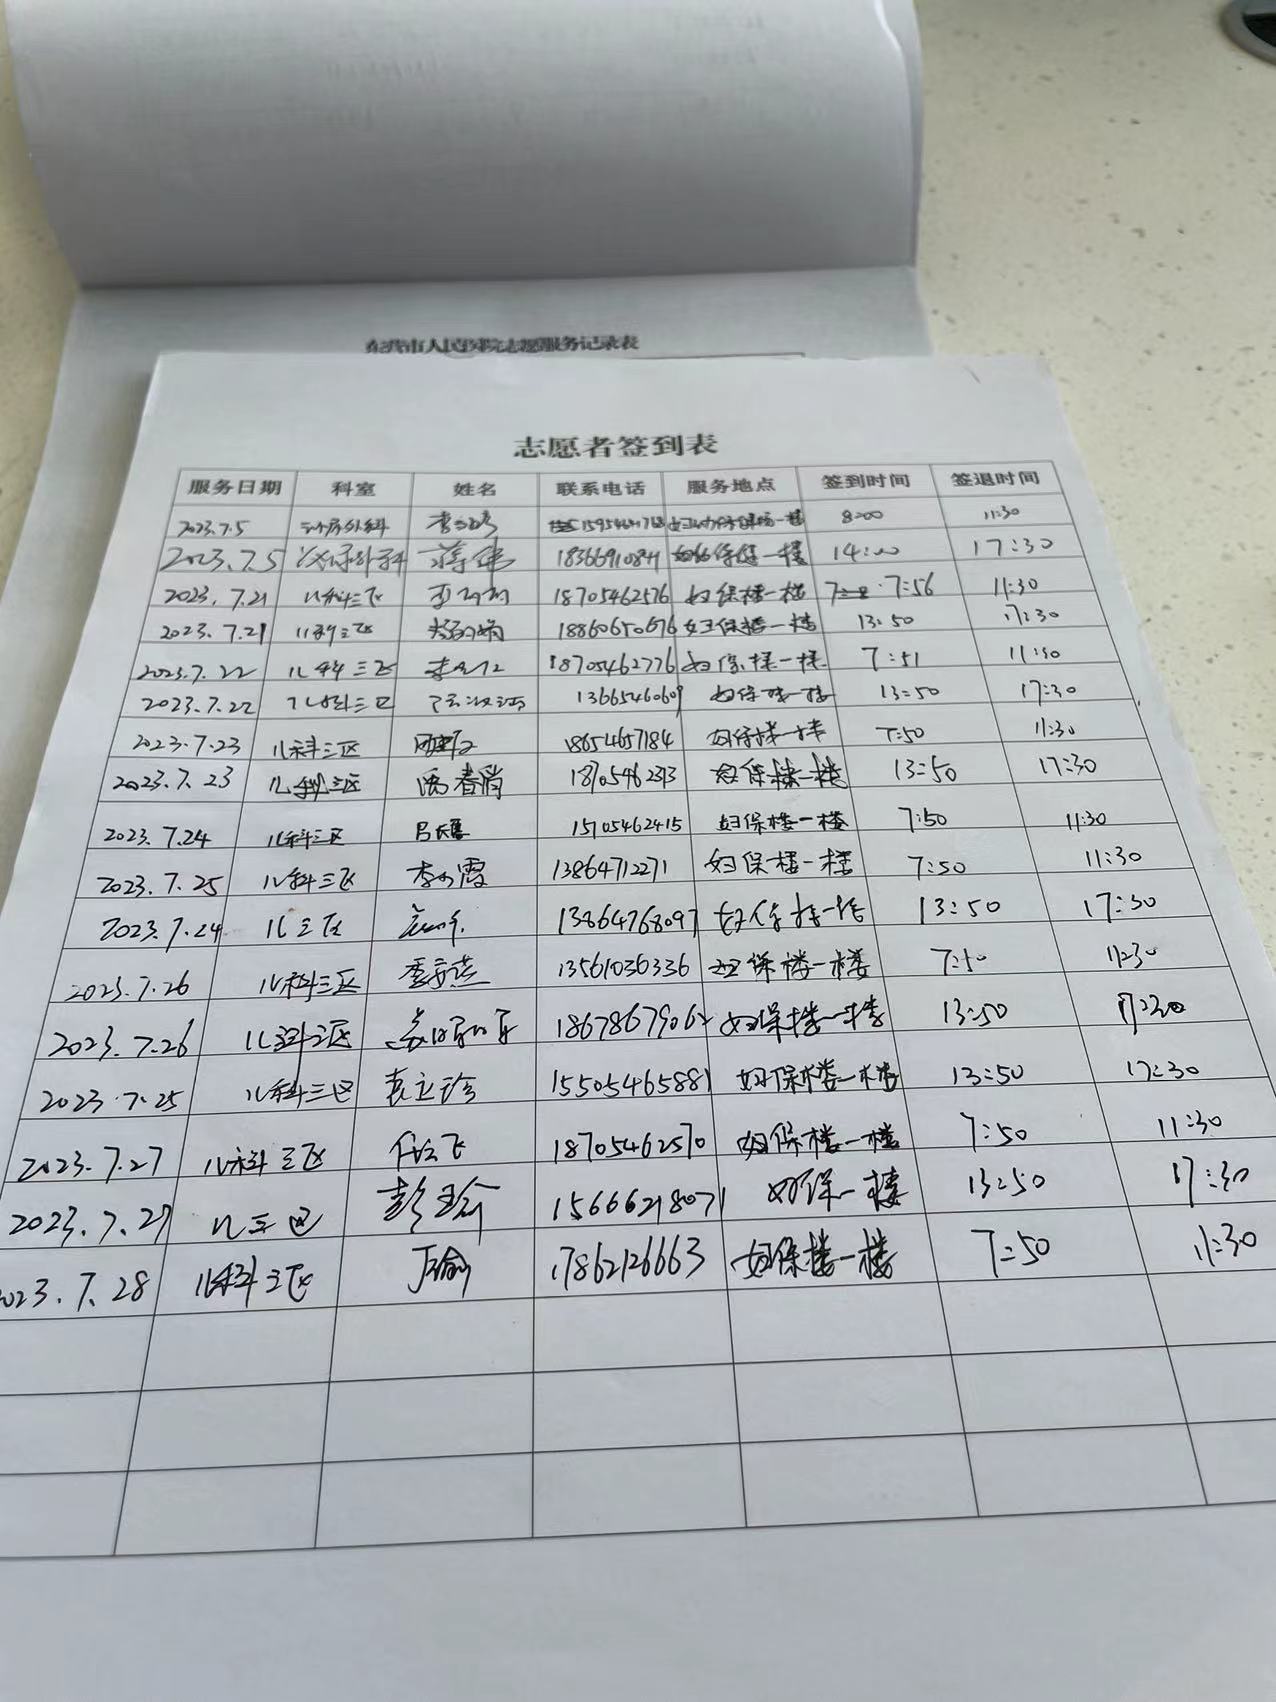 东营市人民医院志愿服务记录表
志愿者签到表
服务日期 科室 姓名 联系电话 服务地点 签到时间 签退时间
2023.7.5 外科 一楼 8:00 11:30
2023.7.5 外科 蒋伟 18366910841 妇幼保健一楼 14:00 17:30
2023.7.21 儿科三区 18705462576 妇保楼一楼 7:56 11:30
2023.7.21 儿科三区 18860650676 妇保楼一楼 13:50 17:30
2023.7.22 儿科三区 18705462776 妇保楼一楼 7:51 11:30
2023.7.22 儿科三区 13665460609 妇保楼一楼 13:50 17:30
2023.7.23 儿科三区 18654657184 妇保楼一楼 7:50 11:30
2023.7.23 儿科三区 春 妇保楼一楼 13:50 17:30
2023.7.24 儿科三区 吕 15705462415 妇保楼一楼 7:50 11:30
2023.7.25 儿科三区 李 霞 13864712271 妇保楼一楼 7:50 11:30
2023.7.24 儿三区 13864768097 妇保楼一楼 13:50 17:30
2023.7.26 儿科三区 13561036336 妇保楼一楼 7:50 11:30
2023.7.26 儿科三区 18678679062 妇保楼一楼 13:50 17:30
2023.7.25 儿科三区 袁立珍 15505465881 妇保楼一楼 13:50 17:30
2023.7.27 儿科三区 任云飞 18705462570 妇保楼一楼 7:50 11:30
2023.7.27 儿三区 彭瑜 15666218071 妇保一楼 13:50 17:30
2023.7.28 儿科三区 17862126663 妇保楼一楼 7:50 11:30